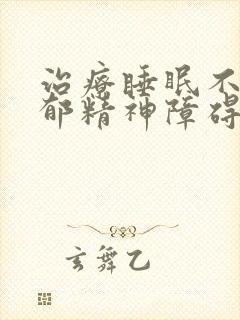 治疗睡眠不
郁精神障碍
玄舞乙